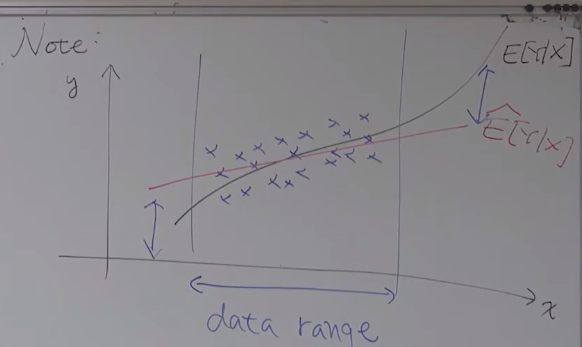 Note:
y
E[Y|X]
Ê[Y|X]
x
data range